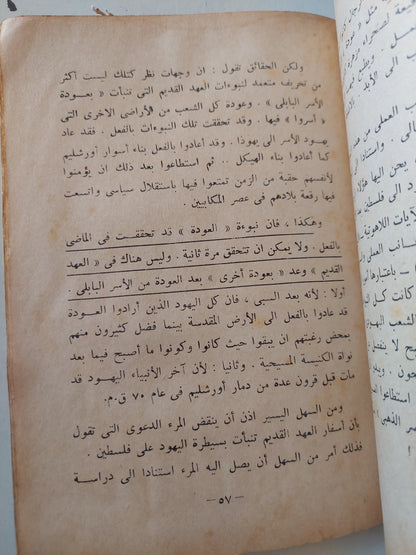 ولكن الحقائق تقول : ان وجهات نظر كتلك ليست أكثر
من تخريف متعمد لنبوءات العهد القديم التى تنبأت « بعودة
الأسر البابلى » . وعودة كل الشعب من الأراضى الاخرى التى
« أسروا » فيها . وقد تحققت تلك النبوءات بالفعل . فقد عاد
يهود الأسر الى يهوذا . وقد أعادوا بالفعل بناء أسوار أورشليم
كما أعادوا بناء الهيكل .. ثم استطاعوا بعد ذلك ان يؤمنوا
لأنفسهم حقبة من الزمن تمتعوا فيها باستقلال سياسى واتسعت
فيها رقعة بلادهم فى عصر المكابيين .
وهكذا ، فان نبوءة « العودة » قد تحققت فى الماضى
بالفعل . ولا يمكن ان تتحقق مرة ثانية . وليس هناك فى « العهد
القديم » وعد « بعودة أخرى » بعد العودة من الأسر البابلى .
أولا : لأنه بعد السبى ، فان كل اليهود الذين أرادوا العودة
قد عادوا بالفعل الى الأرض المقدسة بينما فضل كثيرون منهم
بمحض رغبتهم ان يبقوا حيث كانوا وكونوا ما أصبح فيما بعد
نواة الكنيسة المسيحية . وثانيا : لأن آخر الأنبياء اليهود قد
مات قبل قرون عدة من دمار أورشليم فى عام ٧٠ ق.م.
ومن السهل اليسير اذن أن ينقض المرء الدعوى التى تقول
بأن أسفار العهد القديم تنبأت بسيطرة اليهود على فلسطين .
فذلك أمر من السهل أن يصل اليه المرء استنادا الى دراسة
– ٥٧ –